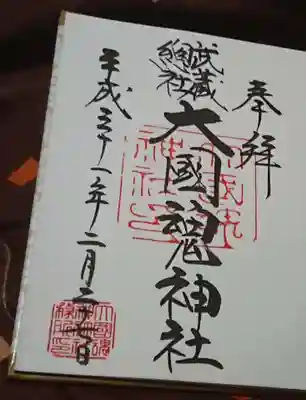 奉拝
武蔵
総社
大國魂神社
平成三十一年二月二十日